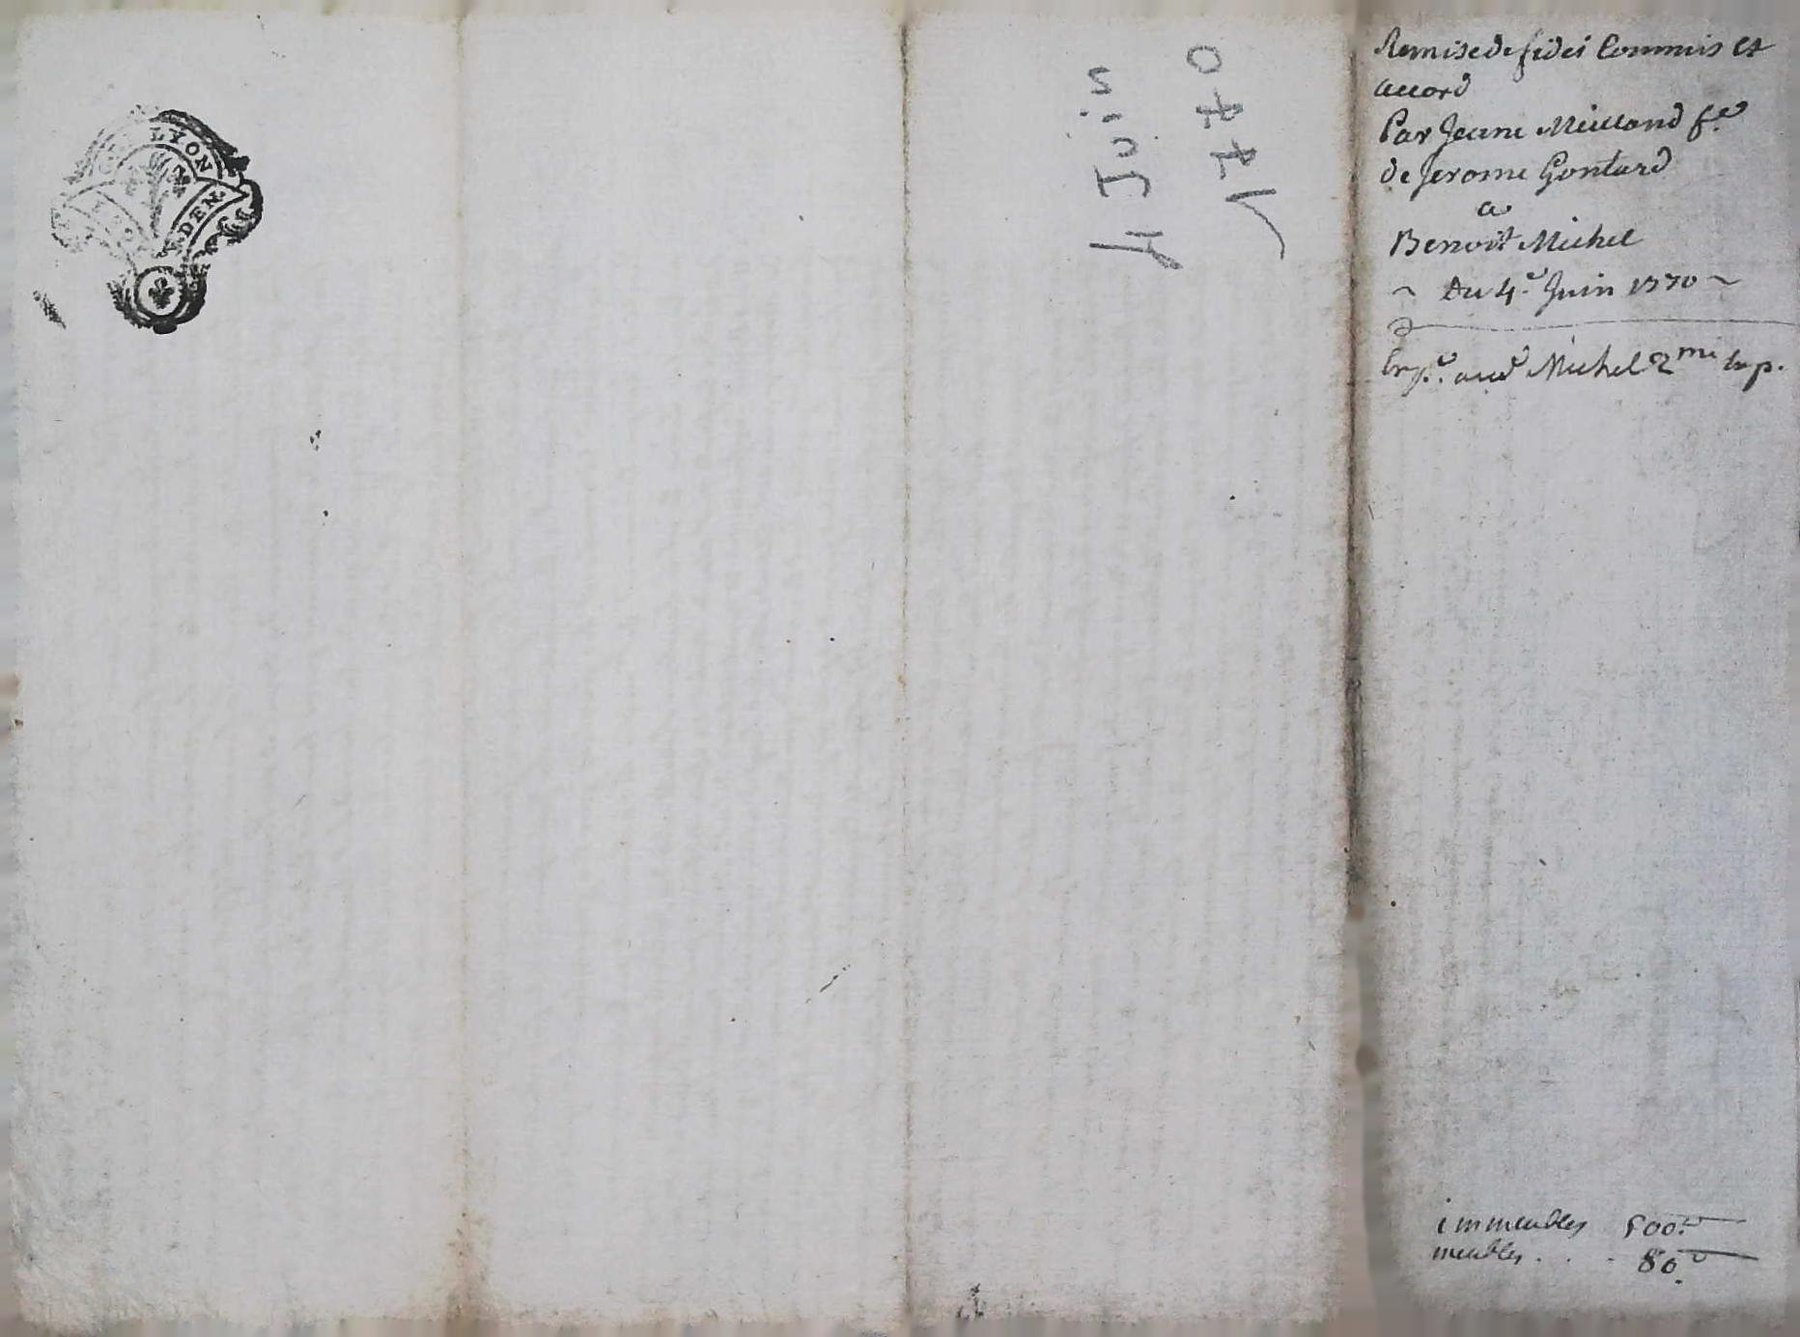 LYON
DEN.
4 Juin
1770
Remise de fidei Commis et
accord
Par Jeanne Milland fe.
de Jerome Gontard
a
Benoit Michel
~ Du 4e. Juin 1770 ~
Exp.e. aud Michel 2me Exp.
immeubles 500.
meubles . . . 80.